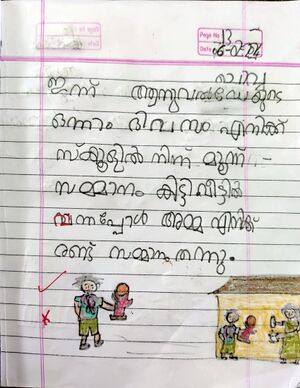 Page No 13
Date 6-02-24
ഇന്ന് ആനുവൽഡേയുടെ
ഒന്നാം ദിവസം. എനിക്ക്
സ്ക്കൂളിൽ നിന്ന് മൂന്ന്
സമ്മാനം കിട്ടി വീട്ടിൽ
വന്നപ്പോൾ അമ്മ എനിക്ക്
രണ്ട് സമ്മാനം തന്നു.